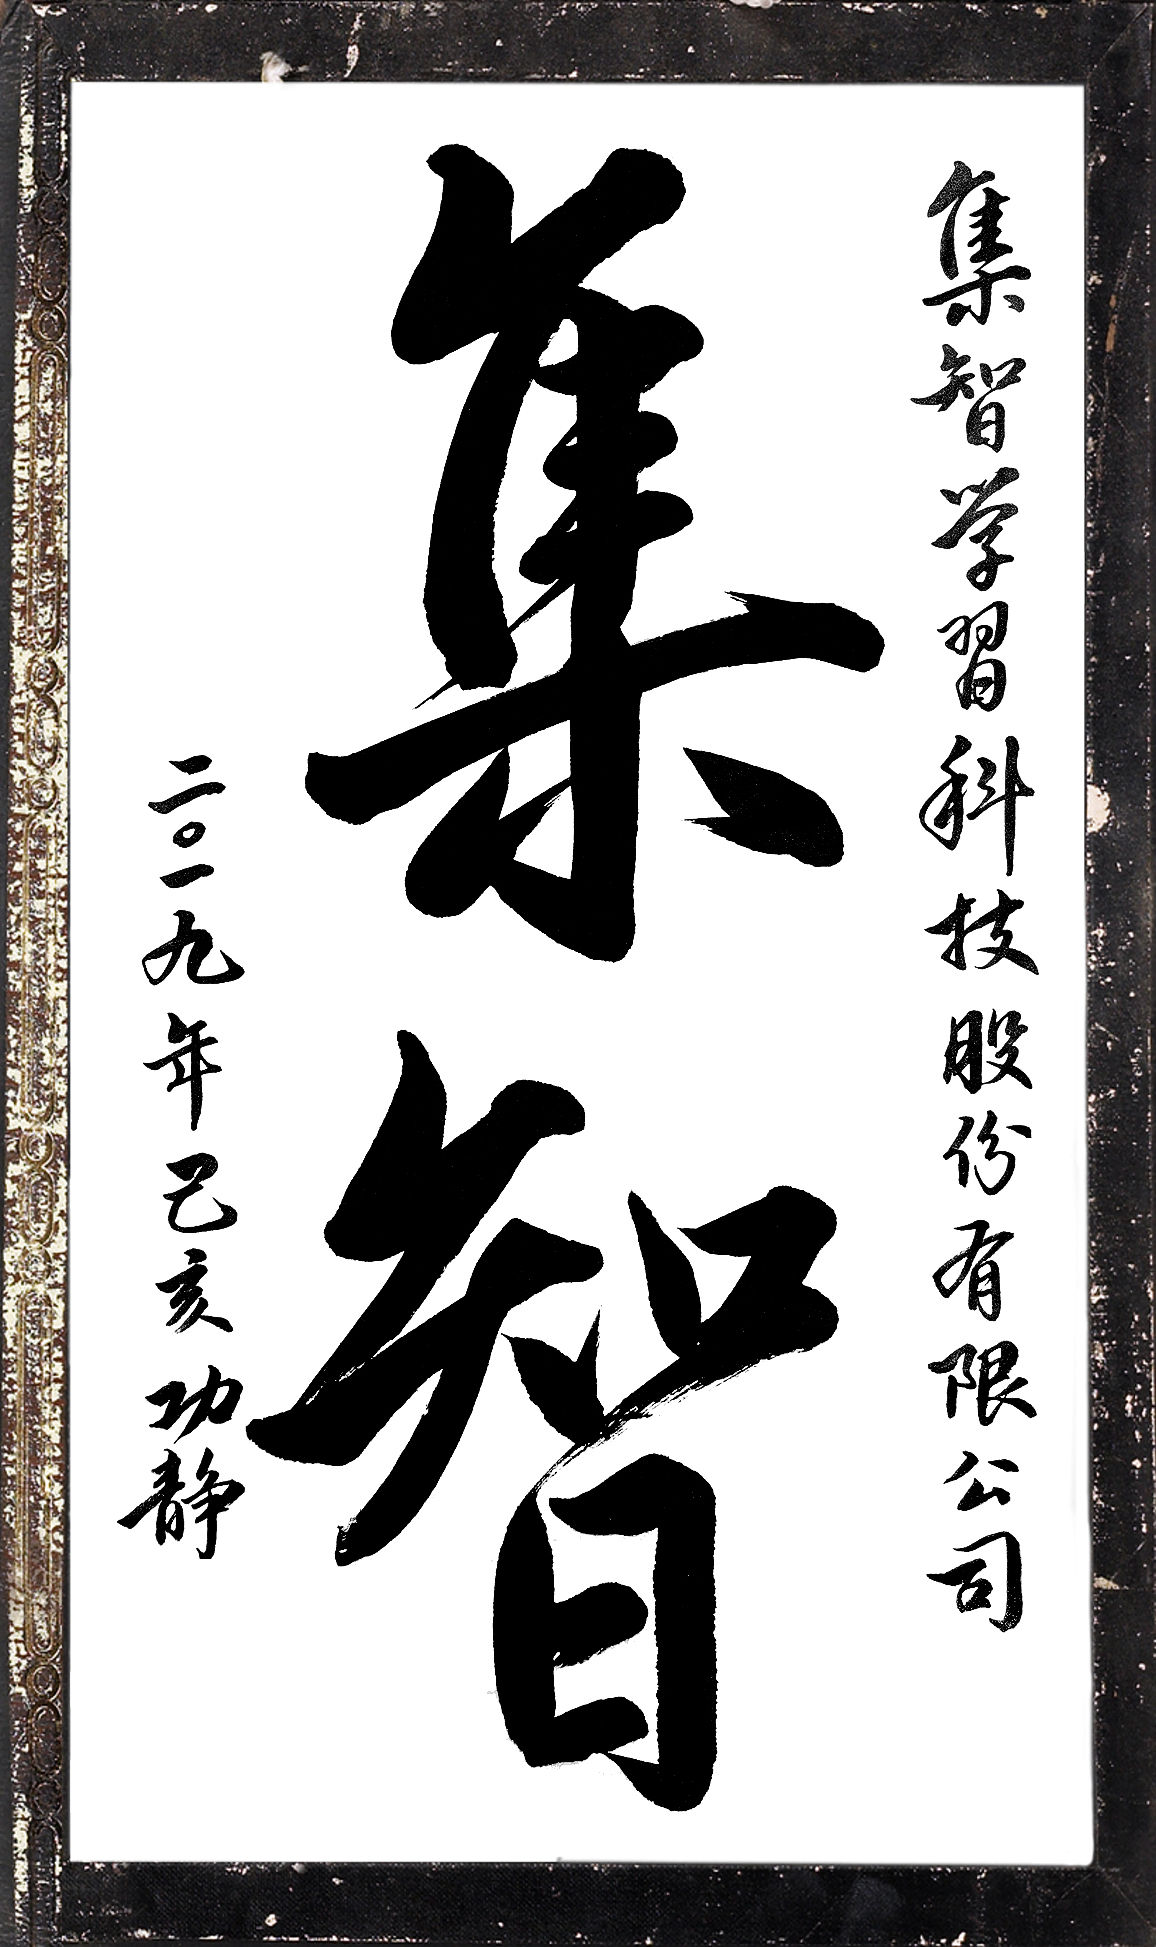 集智学習科技股份有限公司
集智
二〇一九年己亥功静